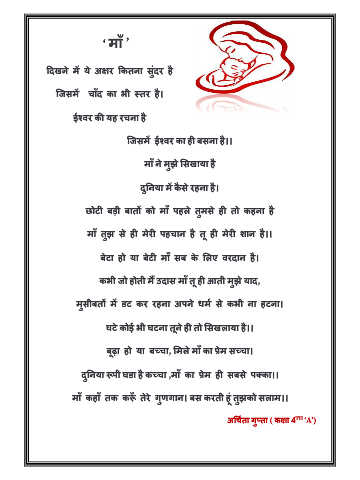 ‘ माँ ’
दिखने में ये अक्षर कितना सुंदर है
जिसमें चाँद का भी स्तर है।
ईश्वर की यह रचना है
जिसमें ईश्वर का ही बसना है।।
माँ ने मुझे सिखाया है
दुनिया में कैसे रहना है।
छोटी बड़ी बातों को माँ पहले तुमसे ही तो कहना है
माँ तुझ से ही मेरी पहचान है तू ही मेरी शान है।।
बेटा हो या बेटी माँ सब के लिए वरदान है।
कभी जो होती मैं उदास माँ तू ही आती मुझे याद,
मुसीबतों में डट कर रहना अपने धर्म से कभी ना हटना।
घटे कोई भी घटना तूने ही तो सिखलाया है।।
बूढ़ा हो या बच्चा, मिले माँ का प्रेम सच्चा।
दुनिया रूपी घडा है कच्चा ,माँ का प्रेम ही सबसे पक्का।।
माँ कहाँ तक करूँ तेरे गुणगान। बस करती हूं तुझको सलाम।।
अर्चिता गुप्ता ( कक्षा 4 ‘A’)